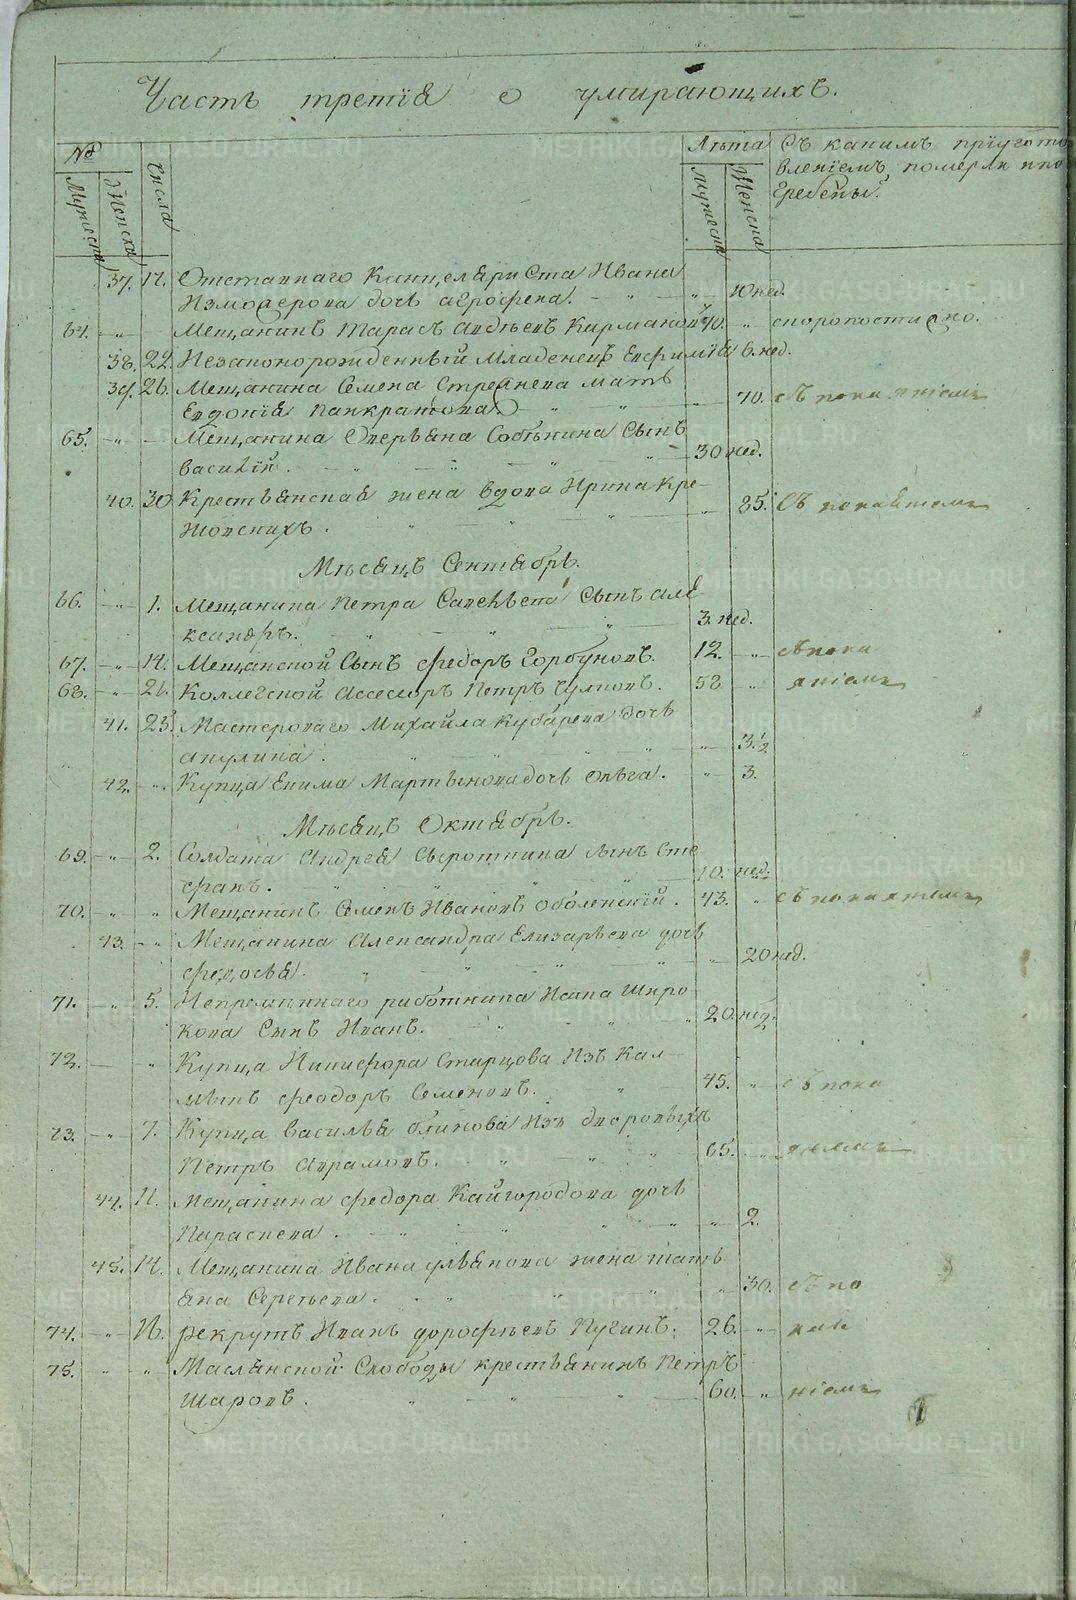 Часть третїя о умирающихъ.
№
Мужеска
Женска
Числа
Лѣта
Мужеска
Женска
Съ какимъ прїугото
вленїемъ померли и по
гребены.
37. 17. Отставнаго Канцеляриста Ивана
Измодерова дочь Агрофена. — „ — „ 10 нед.
64. — „ — Мещанинъ Тарасъ Авдѣевъ Кирмановъ 70. „ скоропостижно.
38. 22. Незаконорожденный Младенецъ Евфимїя 6. нед.
39. 26. Мещанина Семена Стрежнева мать
Евдокїя Панкратова. — „ — „ — 70. съ покаянїемъ
65. — „ — Мещанина Оверьяна Собѣнина сынъ
Василїй. — „ — „ — „ — „ — 30 нед.
40. 30 Крестьянская жена вдова Ирина Кре-
жовскихъ. — „ — „ — „ 85. Съ покаянїемъ
Мѣсяцъ Сентябрь.
66. — „ — 1. Мещанина Петра Савельева Сынъ Але
ксандръ. — „ — „ — „ — 3. нед.
67. — „ — 14. Мещанской Сынъ Федоръ Горбуновъ. 12. — „ съ пока
68. — „ — 21. Коллегской Ассесоръ Петръ Чупновъ. 58 „ янїемъ
41. 25. Мастероваго Михайла Кубарева дочь
Акулина. — „ — „ — „ — 3 1/2
42. — „ . Купца Екима Мартынова дочь Ольга. — „ 3.
Мѣсяцъ Октябрь.
69. — „ — 2. Солдата Андрея Сыроткина сынъ Сте
фанъ. „ — „ — „ — „ — 10. нед.
70. — „ „ Мещанинъ Семенъ Ивановъ Оболенскїй. 43. „ съ покаянїемъ
43. — „ Мещанина Александра Елизарьева дочь
Федосья. „ — „ — „ — „ 20 нед.
71. — „ — 5. Непремѣннаго работника Исака Широ
кова Сынъ Иванъ. — „ — „ — „ 20. нед.
72. — „ Купца Никифора Старцова Изъ Кал-
мыкъ Феодоръ Семеновъ. — „ 45. „ съ пока
73. — „ — 7. Купца Василья Блинова Изъ дворовыхъ
Петръ Аврамовъ. — „ — „ — „ 65. „ янїемъ
44. 11. Мещанина Федора Кайгородова дочь
Параскева. — „ — „ — „ — „ 2.
45. 14. Мещанина Ивана Ульянова жена Тать
яна Сергѣева. — „ — „ — „ 30. съ по
74. — „ — 16. Рекрутъ Иванъ Дорофѣевъ Пугинъ. 26. — „ кая
75. „ „ Маслянской Слободы крестьянинъ Петръ
Шаровъ. „ — „ — „ — 60. „ нїемъ